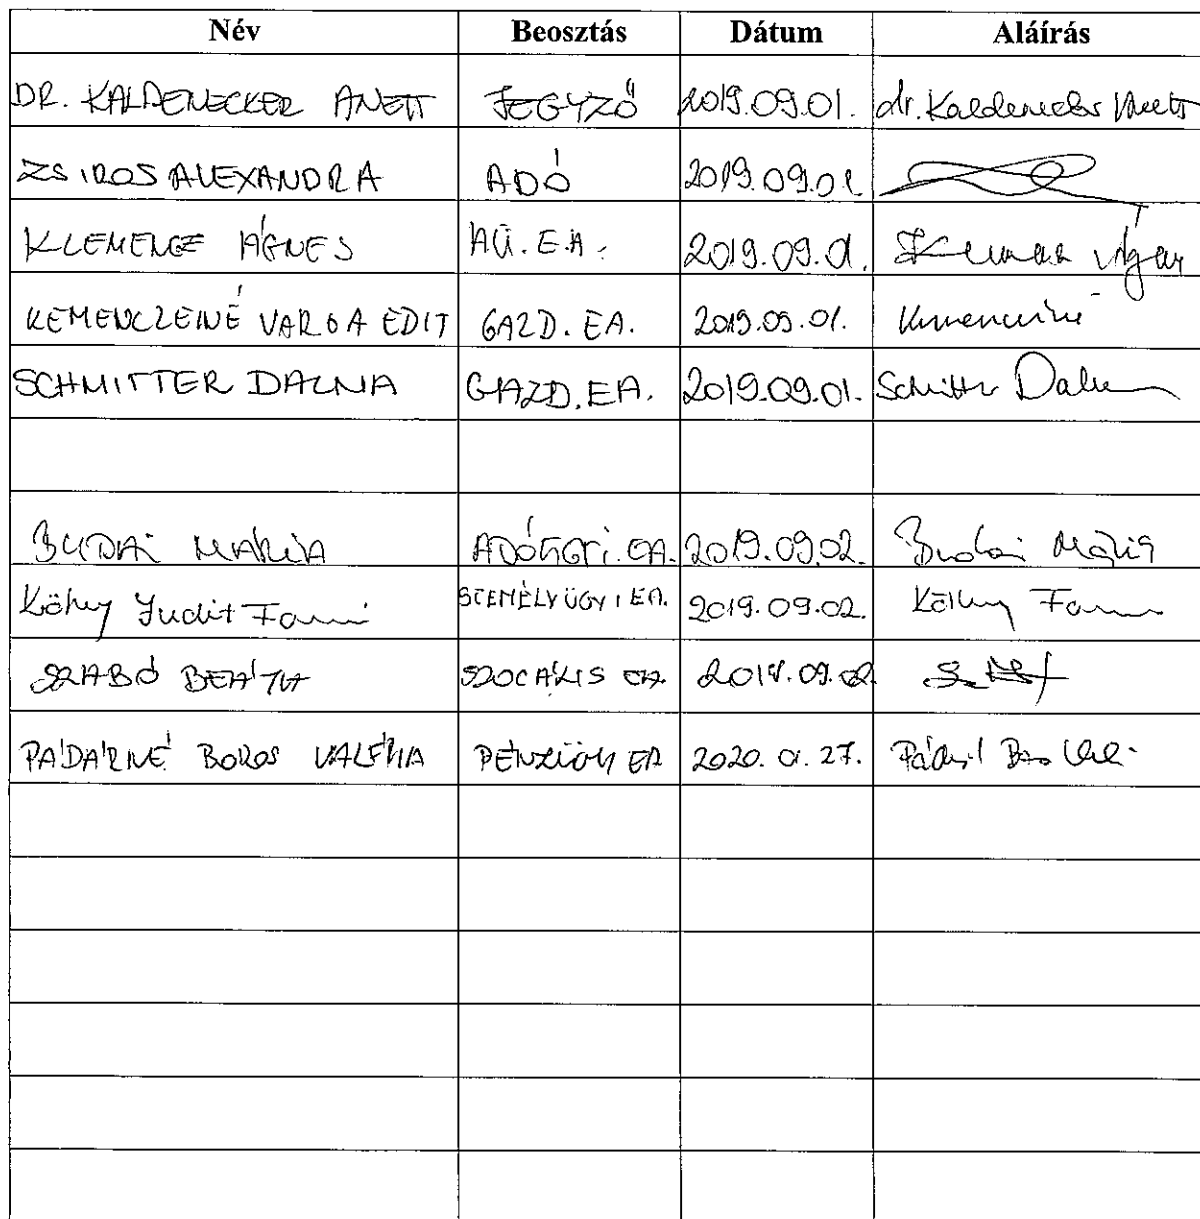 Név Beosztás Dátum Aláírás
DR. KALDENECKER ANETT JEGYZŐ 2019.09.01. dr. Kaldenecker Anett
ZSIROS ALEXANDRA ADÓ 2019.09.01.
KLEMENCE ÁGNES AÜ. E.A. 2019.09.01.
KEMENCZEINÉ VARGA EDIT GAZD. EA. 2019.09.01.
SCHMITTER DALMA GAZD. EA. 2019.09.01. Schmitter Dalma
BUDAI MÁRIA 2019.09.02. Budai Mária
Judit Fanni SZEMÉLYÜGYI EA. 2019.09.02.
SZABÓ BEÁTA SZOCIÁLIS EA. 2019.09.02.
PÁDÁRNÉ BOROS VALÉRIA PÉNZÜGYI EA 2020. 01. 27.